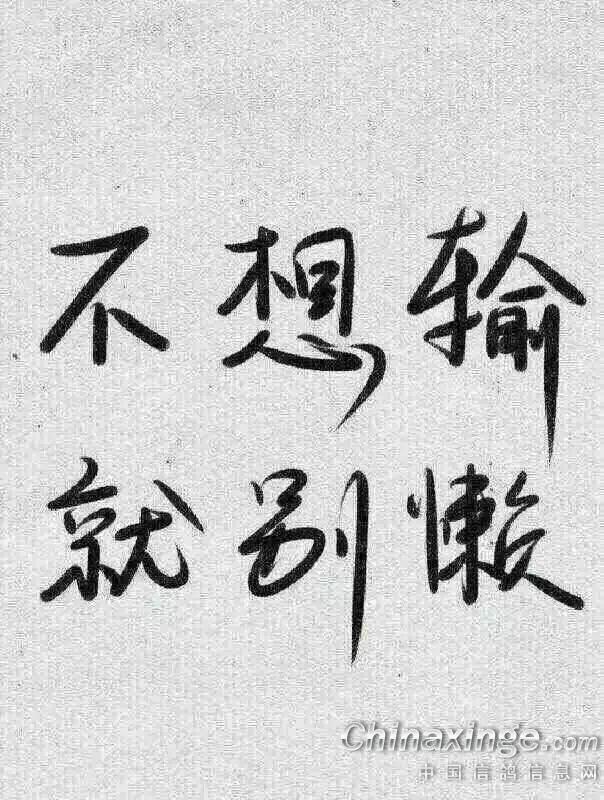 不想输
就别懒
Chinaxinge.com
中国信鸽信息网